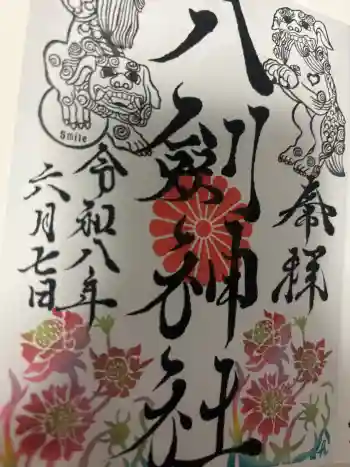 奉拝
八剱神社
令和八年
六月七日
Smile